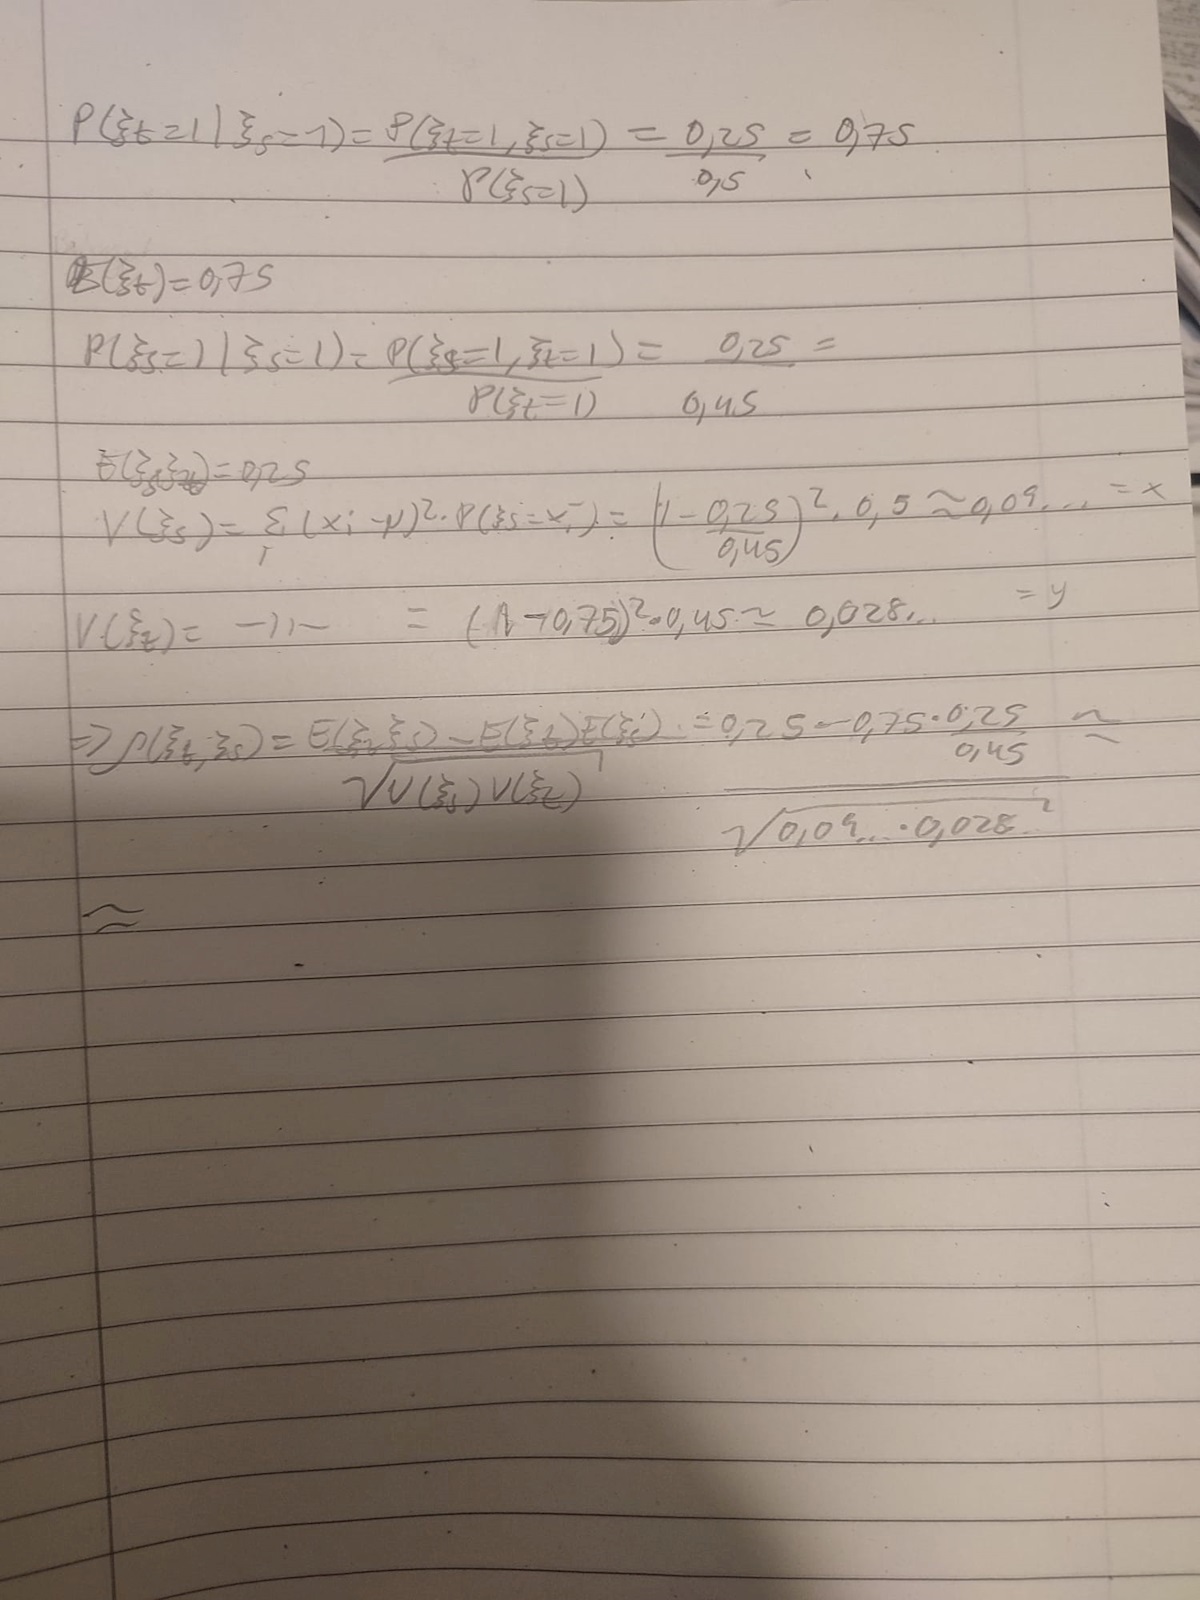 P(ξt=1 | ξs=1) = P(ξt=1, ξs=1) / P(ξs=1) = 0,25 / 0,5 = 0,75
E(ξt) = 0,75
P(ξs=1 | ξs=1) = P(ξs=1, ξt=1) / P(ξt=1) = 0,25 / 0,45 =
E(ξsξt) = 0,25
V(ξs) = Σi (xi - μ)²·P(ξs=xi) = (1 - 0,25/0,45)²·0,5 ≈ 0,09... = x
V(ξt) = -||- = (1-0,75)²·0,45 ≈ 0,028... = y
=> ρ(ξt,ξs) = E(ξtξs) - E(ξt)E(ξs) / √V(ξs)V(ξt) = 0,25 - 0,75·0,25/0,45 / √0,09...·0,028 ≈
≈